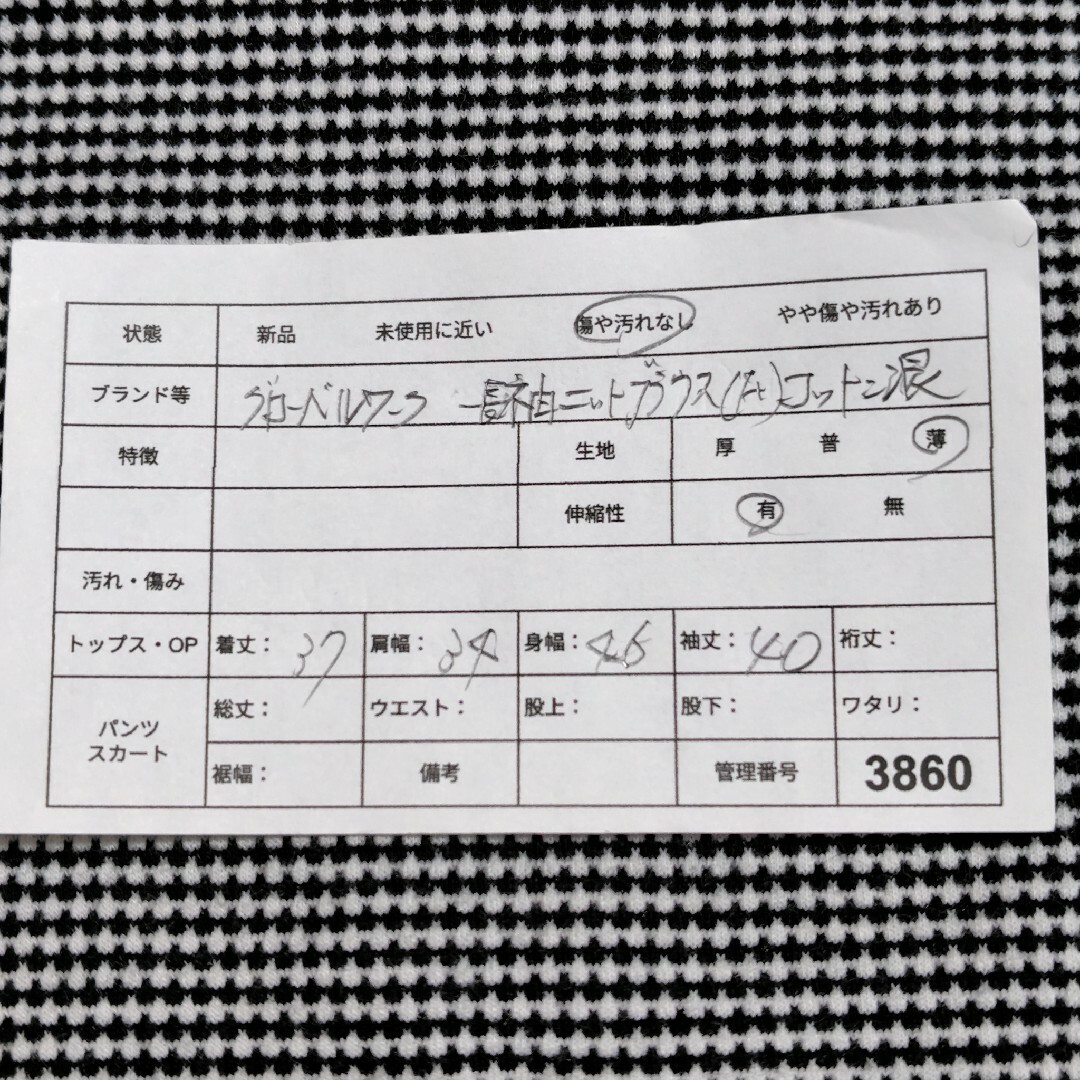 状態 新品 未使用に近い 傷や汚れなし やや傷や汚れあり
ブランド等 グローバルワーク 長袖ニットブラウス コットン混
特徴 生地 厚 普 薄
伸縮性 有 無
汚れ・傷み
トップス・OP 着丈: 37 肩幅: 34 身幅: 46 袖丈: 40 裄丈:
パンツ スカート 総丈: ウエスト: 股上: 股下: ワタリ:
裾幅: 備考 管理番号 3860